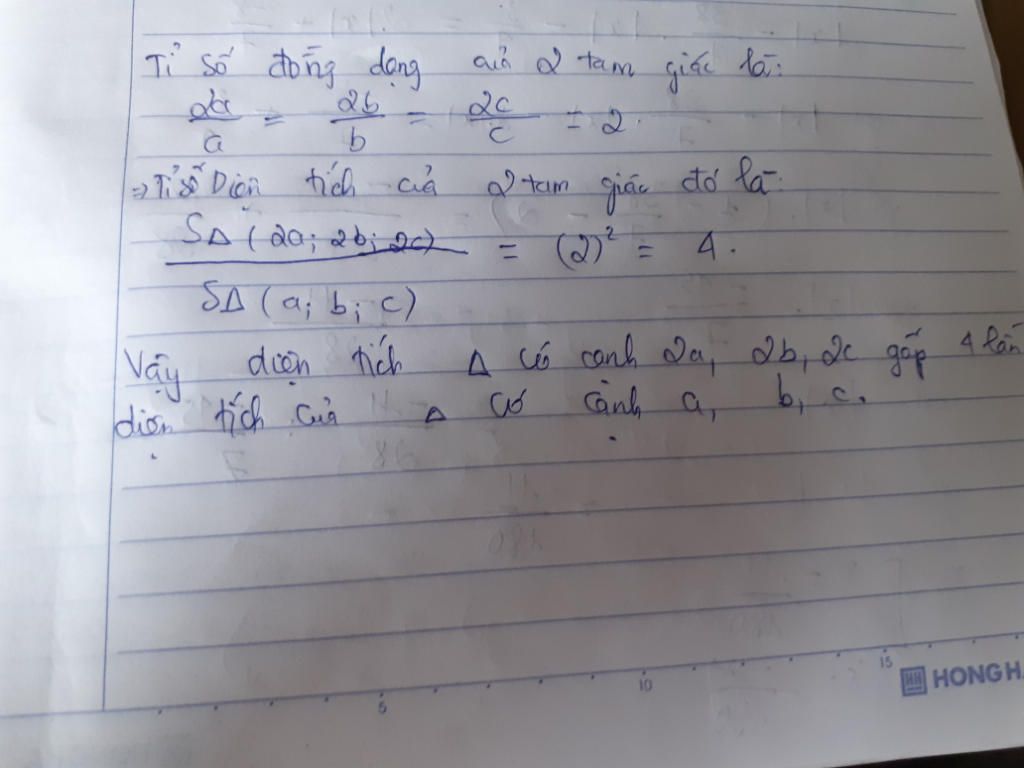 Tỉ số đồng dạng của 2 tam giác là:
2a/a = 2b/b = 2c/c = 2.
⇒ Tỉ số Diện tích của 2 tam giác đó là:
SΔ (2a; 2b; 2c) / SΔ (a; b; c) = (2)² = 4.
Vậy diện tích Δ có cạnh 2a, 2b, 2c gấp 4 lần
diện tích của Δ có cạnh a, b, c.
5 10 15
HONG HA